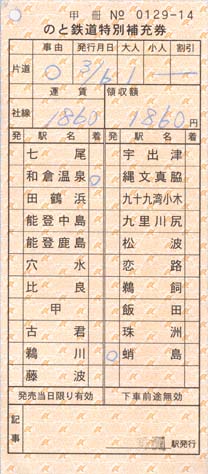 甲 冊 № 0129-14
のと鉄道特別補充券
事由 発行月日 大人 小人 割引
片道 3/6 1
運賃 領収額
社線 1860 1860円
発 駅名 着 発 駅名 着
七尾 宇出津
和倉温泉 縄文真脇
田鶴浜 九十九湾小木
能登中島 九里川尻
能登鹿島 松波
穴水 恋路
比良 鵜飼
甲 飯田
古君 珠洲
鵜川 蛸島
藤波
発売当日限り有効 下車前途無効
記事
駅発行